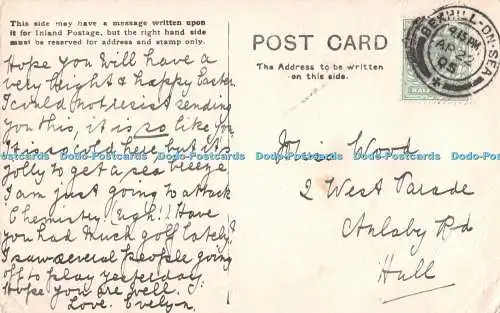 This side may have a message written upon
it for Inland Postage, but the right hand side
must be reserved for address and stamp only.
Hope you will have a
very bright & happy Easter
I could not resist sending
you this, it is so like you
It is so cold here but it's
jolly to get a sea breeze
I am just going to attack
Chemistry (ugh!) Have
you had much golf lately?
I saw several people going
off to play yesterday
Hope you are well.
Love. Evelyn.
POST CARD
The Address to be written
on this side.
BEXHILL-ON-SEA
9.15 PM
AP 22
05
HALF
Wood
2 West Parade
Anlaby Rd
Hull
Dodo-Postcards Dodo-Postcards Dodo-Postcards Dodo-Postcards Dodo-Postcards